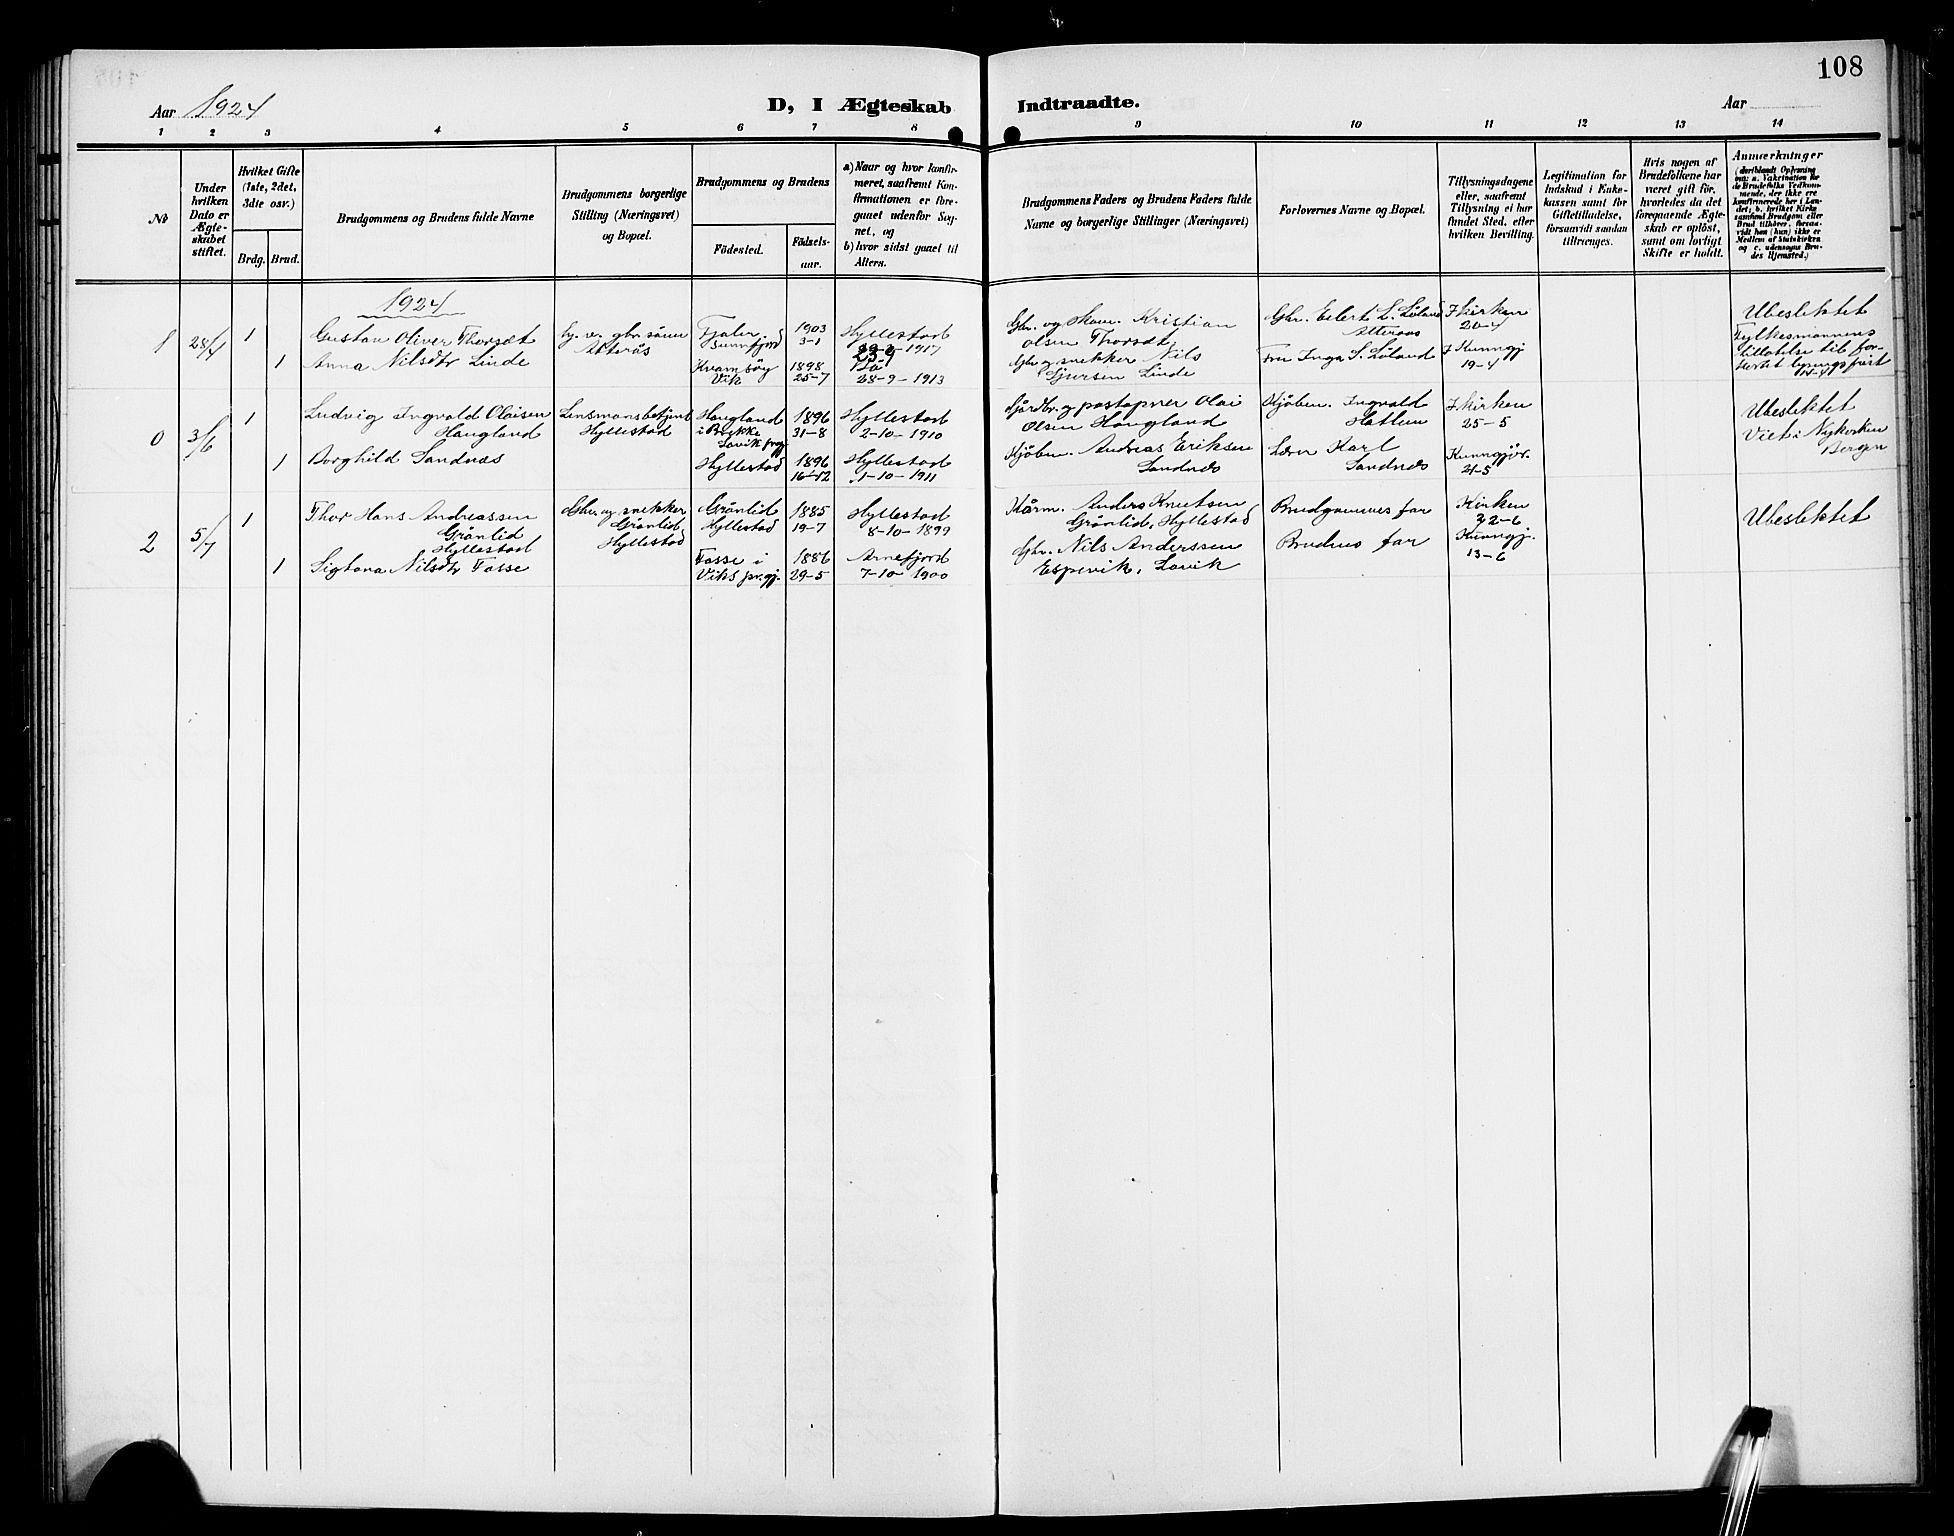 108
Aar 1924
D, I Ægteskab
Indtraadte.
Aar
1 2 3 4 5 6 7 8 9 10 11 12 13 14
No
Under
hvilken
Dato er
Ægte-
skabet
stiftet.
Hvilket Gifte
(1ste, 2det,
3die osv.)
Brdg. Brud.
Brudgommens og Brudens fulde Navne
Brudgommens borgerlige
Stilling (Næringsvei)
og Bopæl.
Brudgommens og Brudens
Fødested.
Fødsels-
aar.
a) Naar og hvor konfir-
meret, saafremt Kon-
firmationen er fore-
gaaet udenfor Sog-
net, og
b) hvor sidst gaaet til
Alters.
Brudgommens Faders og Brudens Faders fulde
Navne og borgerlige Stillinger (Næringsvei)
Forlovernes Navne og Bopæl.
Tillysningsdagene
eller, saafremt
Tillysning ei har
fundet Sted, efter
hvilken Bevilling.
Legitimation for
Indskud i Enke-
kassen samt for
Giftetilladelse,
forsaavidt saadan
tiltrænges.
Hvis nogen af
Brudefolkene har
været gift før,
hvorledes da det
foregaaende Ægte-
skab er opløst,
samt om lovligt
Skifte er holdt.
Anmærkninger
(deriblandt Oplysning
om: a. Vakcination for
de Brudefolks Vedkom-
mende, der ikke ere
konfirmerede her i Lan-
det, b. hvilket Kirke-
samfund Brudgom eller
Brud tilhører, forsaa-
vidt han (hun) ikke er
Medlem af Statskirken
og c. udensogns Bru-
des Hjemsted.)
1924
1 28/4 1 Gustav Oliver Thorsæt
gbr. sönn
Atterås
Fjaler
Sunnfjord
1903
3-1
Hyllestad
1917
Gbr. og Skom. Kristian
Olsen Thorsdt
Gbr. Eilert L. Löland
Atteraas
I Kirken
20-4
Ubeslektet
Fylkesmannens
tillatelse til for-
kortet lysningsfrist
1 Anna Nilsdtr Linde
Kvamsöy
Vik
1898
25-7
28-9-1913
Gbr og snekker Nils
Sjursen Linde
Fru Inga S. Löland
I Kunngj
19-4
0 3/6 1 Ludvig Ingvald Olaisen
Haugland
Lensmansbetjent
Hyllestad
Haugland
i Brekke
Lavik prgj
1896
31-8
Hyllestad
2-10-1910
Gårdbr. og postopner Olai
Olsen Haugland
Kjöbm. Ingvald
Hatlem
I Kirken
25-5
Ubeslektet
Viet i Nykirken
Bergen
1 Borghild Sandnes
Hyllestad
1896
16-12
Hyllestad
1-10-1911
Kjöbm. Andreas Eriksen
Sandnes
Lærer Karl
Sandnes
Kunngjør.
21-5
2 5/7 1 Thor Hans Andreassen
Grönlid
Hyllestad
Gbr. og snekker
Grönlid
Hyllestad
Grönlid
Hyllestad
1885
19-7
Hyllestad
8-10-1899
Kårm. Anders Knutsen
Grönlid, Hyllestad
Brudgommens far
Kirken
22-6
Ubeslektet
1 Sigtona Nilsdtr Fosse
Fosse i
Viks pr.gj.
1886
29-5
Arnefjord
7-10-1900
Gbr. Nils Anderssen
Espevik, Lavik
Brudens far
Kunngj.
13-6